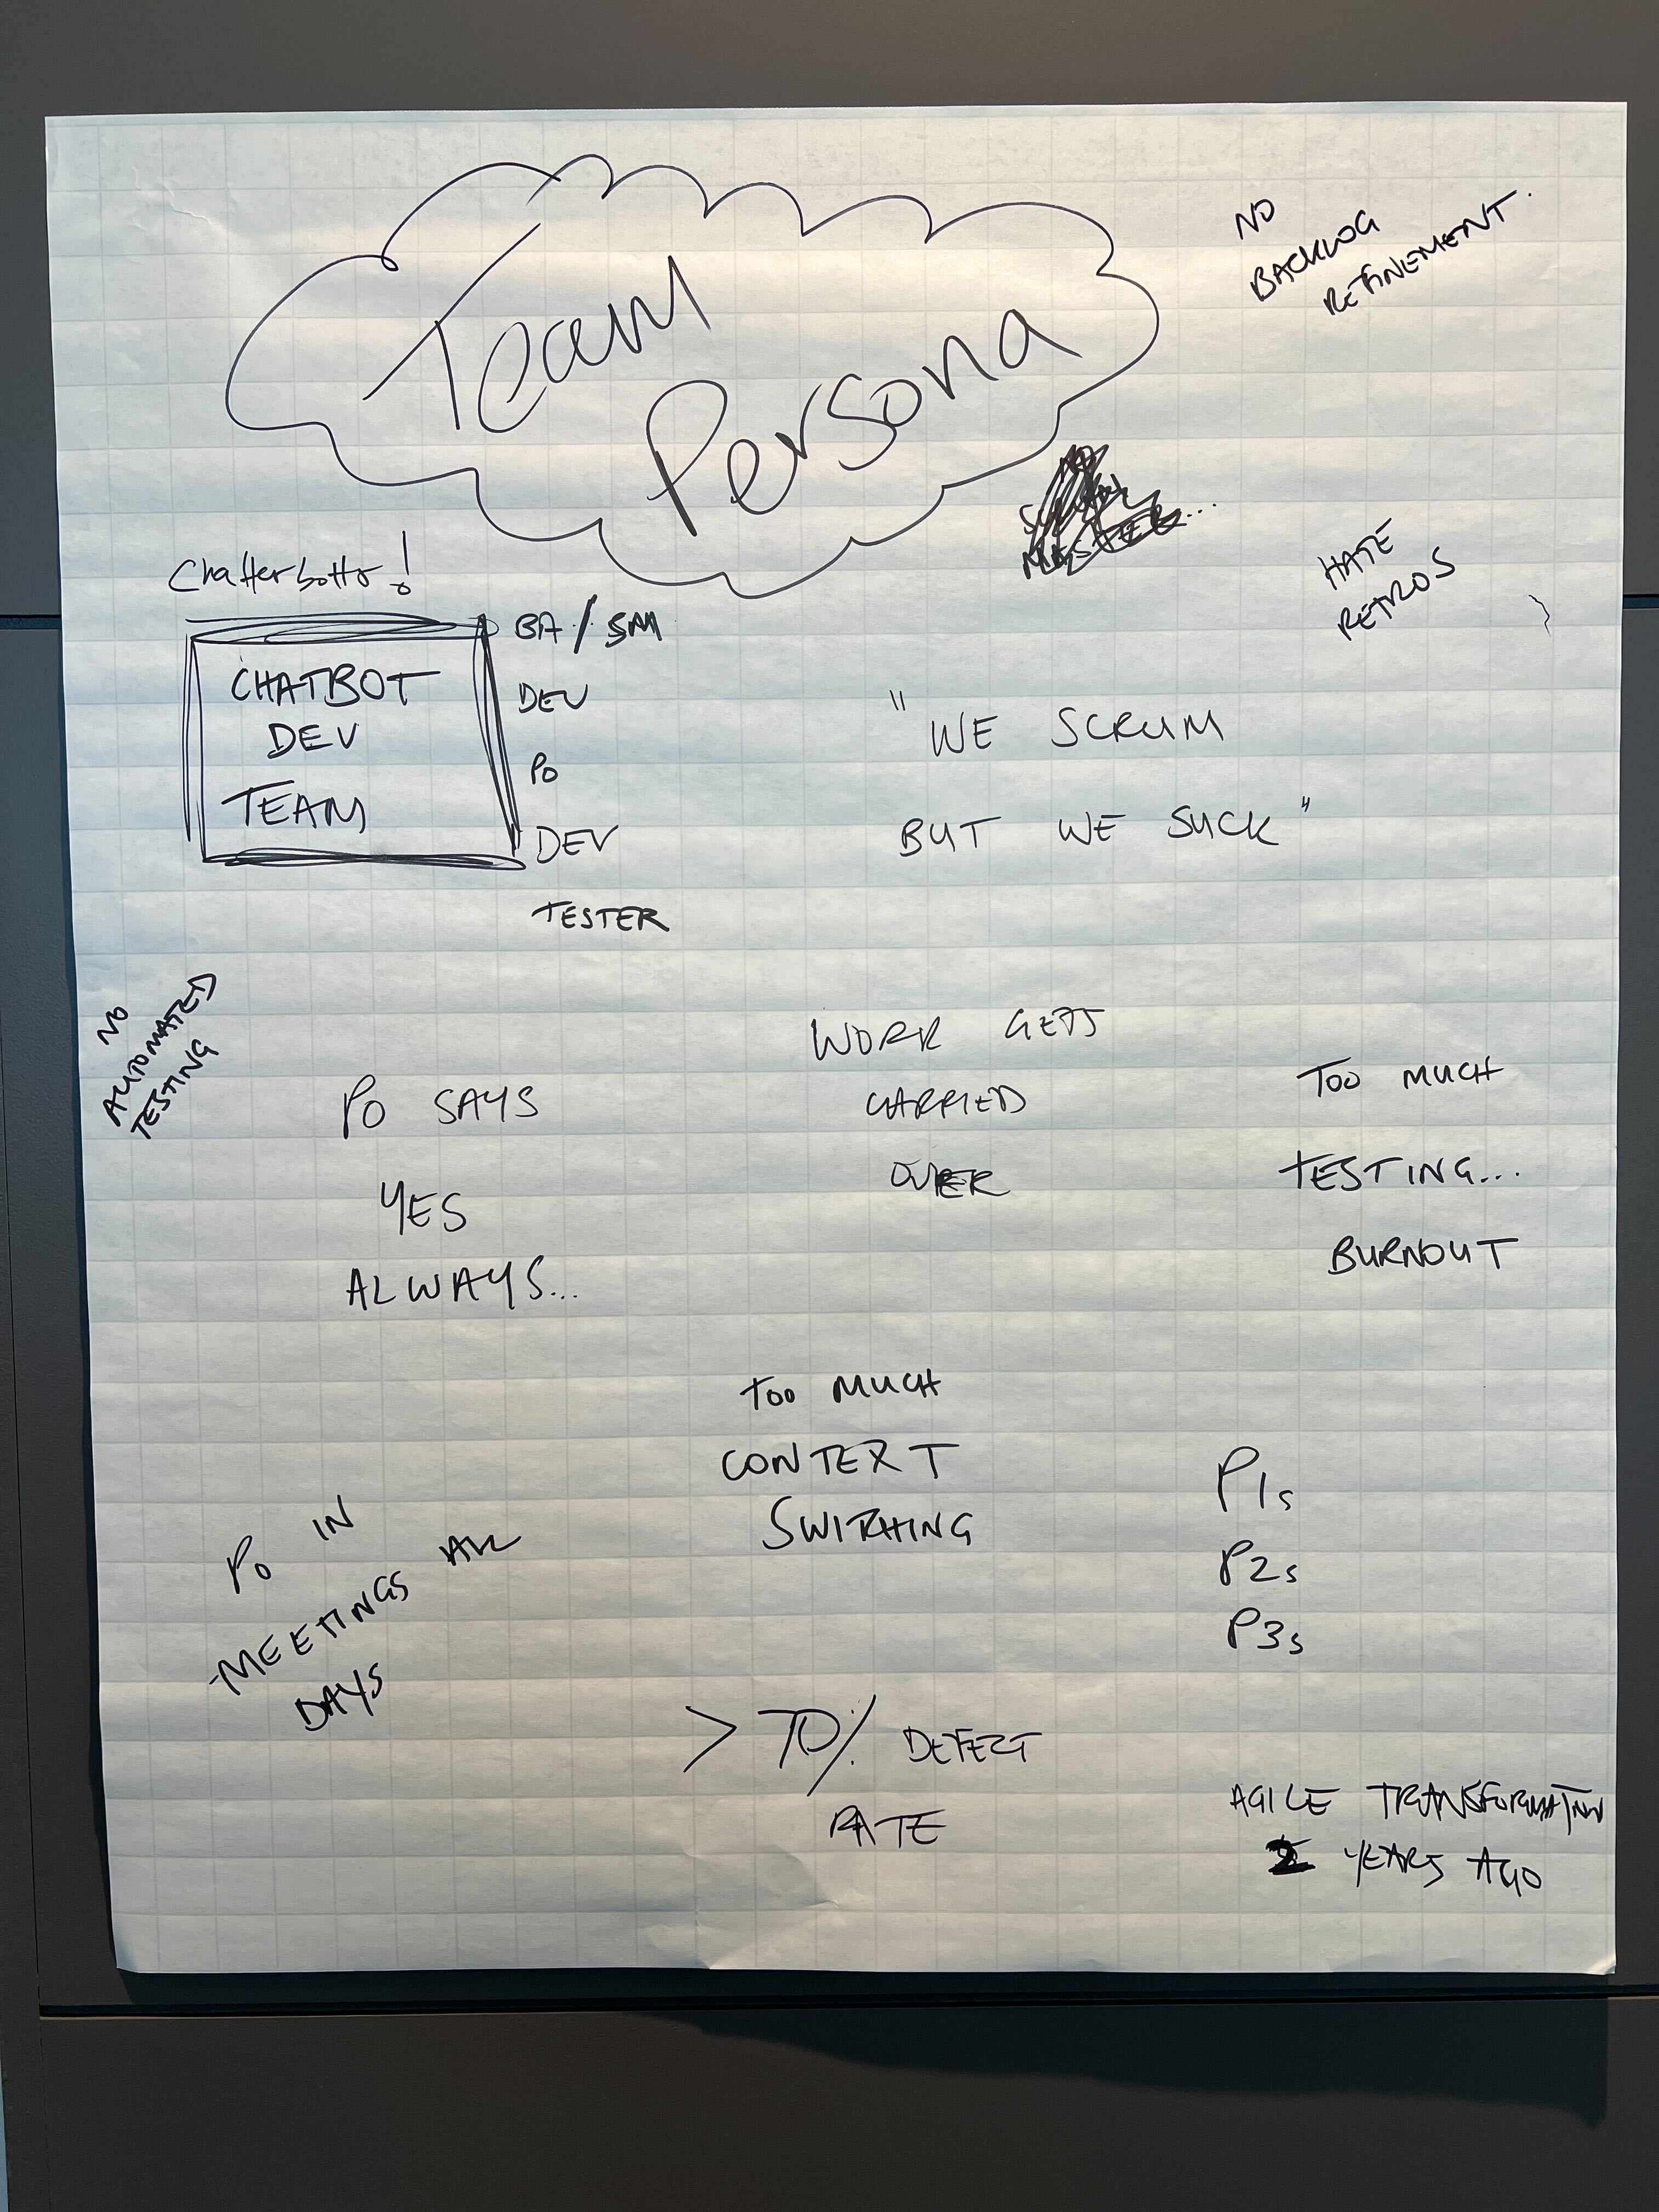 Team
Persona
NO
BACKLOG
REFINEMENT.
HATE
RETROS
CHATBOT
DEV
TEAM
BA / SM
DEV
PO
DEV
TESTER
"WE SCRUM
BUT WE SUCK"
NO
AUTOMATED
TESTING
PO SAYS
YES
ALWAYS...
WORK GETS
CARRIED
OVER
TOO MUCH
TESTING...
BURNOUT
TOO MUCH
CONTEXT
SWITHING
PO IN
MEETINGS ALL
DAYS
P1s
P2s
P3s
> 70% DEFECT
RATE
AGILE TRANSFORMATION
2 YEARS AGO